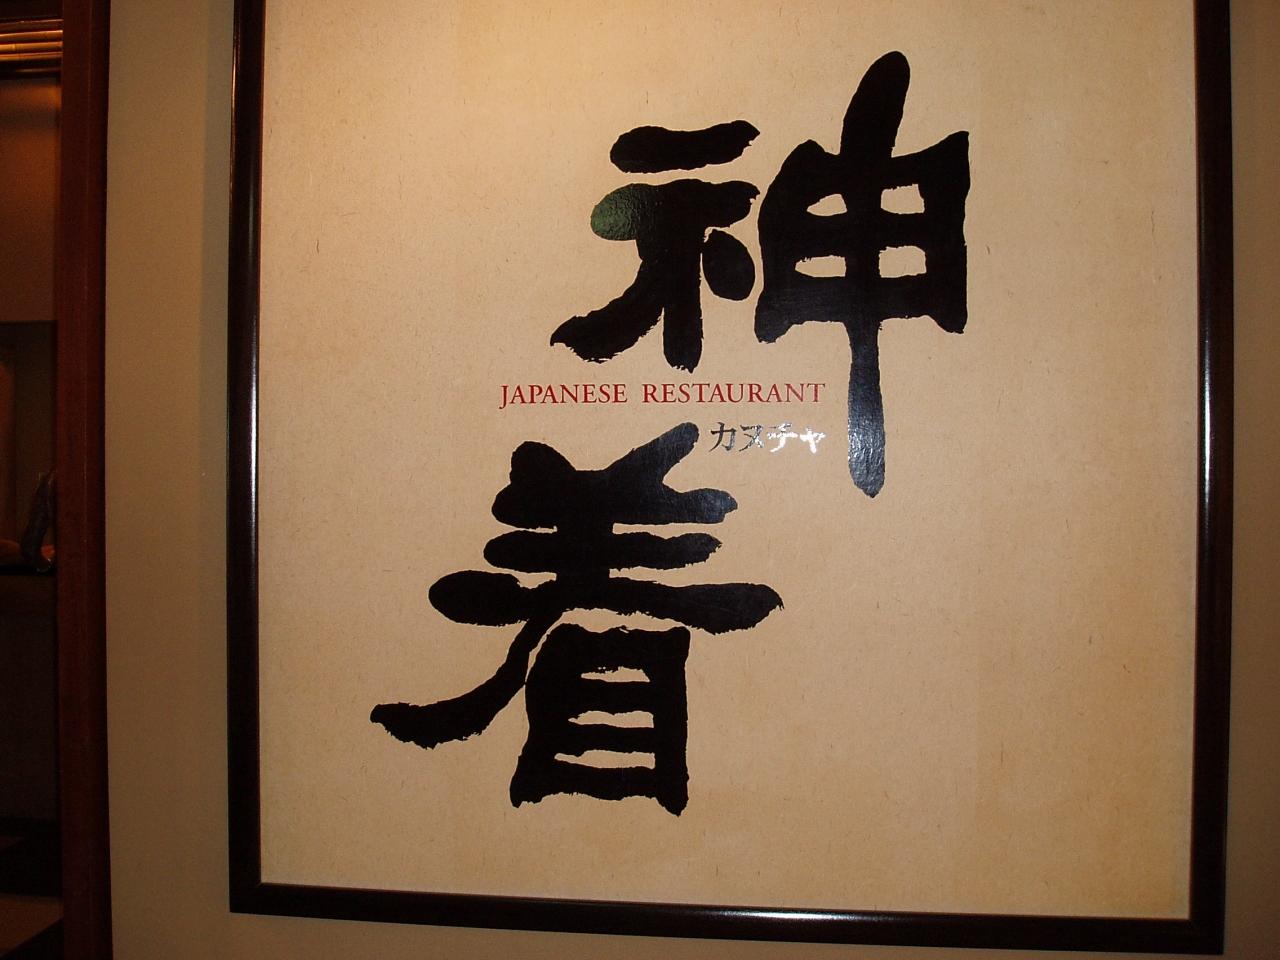 神
JAPANESE RESTAURANT
カヌチャ
着